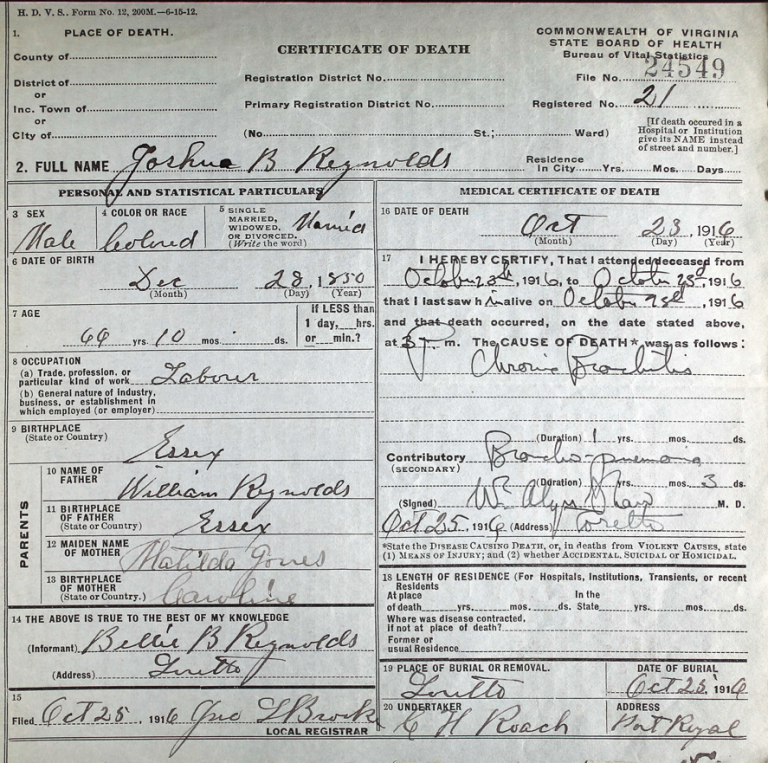 H. D. V. S., Form No. 12, 200M.—6-15-12.
1. PLACE OF DEATH.
County of
District of
or
Inc. Town of
or
City of
CERTIFICATE OF DEATH
Registration District No.
Primary Registration District No.
(No. St.; Ward)
COMMONWEALTH OF VIRGINIA
STATE BOARD OF HEALTH
Bureau of Vital Statistics
File No. 24549
Registered No. 21
[If death occured in a
Hospital or Institution
give its NAME instead
of street and number.]
2. FULL NAME Joshua B Reynolds
Residence
In City Yrs. Mos. Days
PERSONAL AND STATISTICAL PARTICULARS
3 SEX
Male
4 COLOR OR RACE
Colored
5 SINGLE
MARRIED,
WIDOWED,
OR DIVORCED.
(Write the word)
Married
6 DATE OF BIRTH
Dec 28, 1850
(Month) (Day) (Year)
7 AGE
yrs. 10 mos. ds.
If LESS than
1 day, hrs.
or min.?
8 OCCUPATION
(a) Trade, profession, or
particular kind of work Labour
(b) General nature of industry,
business, or establishment in
which employed (or employer)
9 BIRTHPLACE
(State or Country) Essex
PARENTS
10 NAME OF
FATHER
William Reynolds
11 BIRTHPLACE
OF FATHER
(State or Country) Essex
12 MAIDEN NAME
OF MOTHER Matilda Jones
13 BIRTHPLACE
OF MOTHER
(State or Country.) Caroline
14 THE ABOVE IS TRUE TO THE BEST OF MY KNOWLEDGE
(Informant) B Reynolds
(Address) Loretto
15
Filed Oct 25, 1916
LOCAL REGISTRAR
MEDICAL CERTIFICATE OF DEATH
16 DATE OF DEATH
Oct 23, 1916
(Month) (Day) (Year)
17 I HEREBY CERTIFY, That I attended deceased from
October 1916, to October 23rd, 1916
that I last saw him alive on October 1916
and that death occurred, on the date stated above,
at 3 P. m. The CAUSE OF DEATH* was as follows:
Chronic Bronchitis
(Duration) 1 yrs. mos. ds.
Contributory Broncho-pneumonia
(SECONDARY)
(Duration) yrs. mos. 3 ds.
(Signed) M. D.
Oct 25, 1916 (Address) Loretto
*State the DISEASE CAUSING DEATH, or, in deaths from VIOLENT CAUSES, state
(1) MEANS OF INJURY; and (2) whether ACCIDENTAL, SUICIDAL or HOMICIDAL.
18 LENGTH OF RESIDENCE (For Hospitals, Institutions, Transients, or recent
Residents
At place In the
of death yrs. mos. ds. State yrs. mos. ds.
Where was disease contracted,
if not at place of death?
Former or
usual Residence
19 PLACE OF BURIAL OR REMOVAL.
Loretto
DATE OF BURIAL
Oct 25, 1916
20 UNDERTAKER
C H Roach
ADDRESS
Port Royal